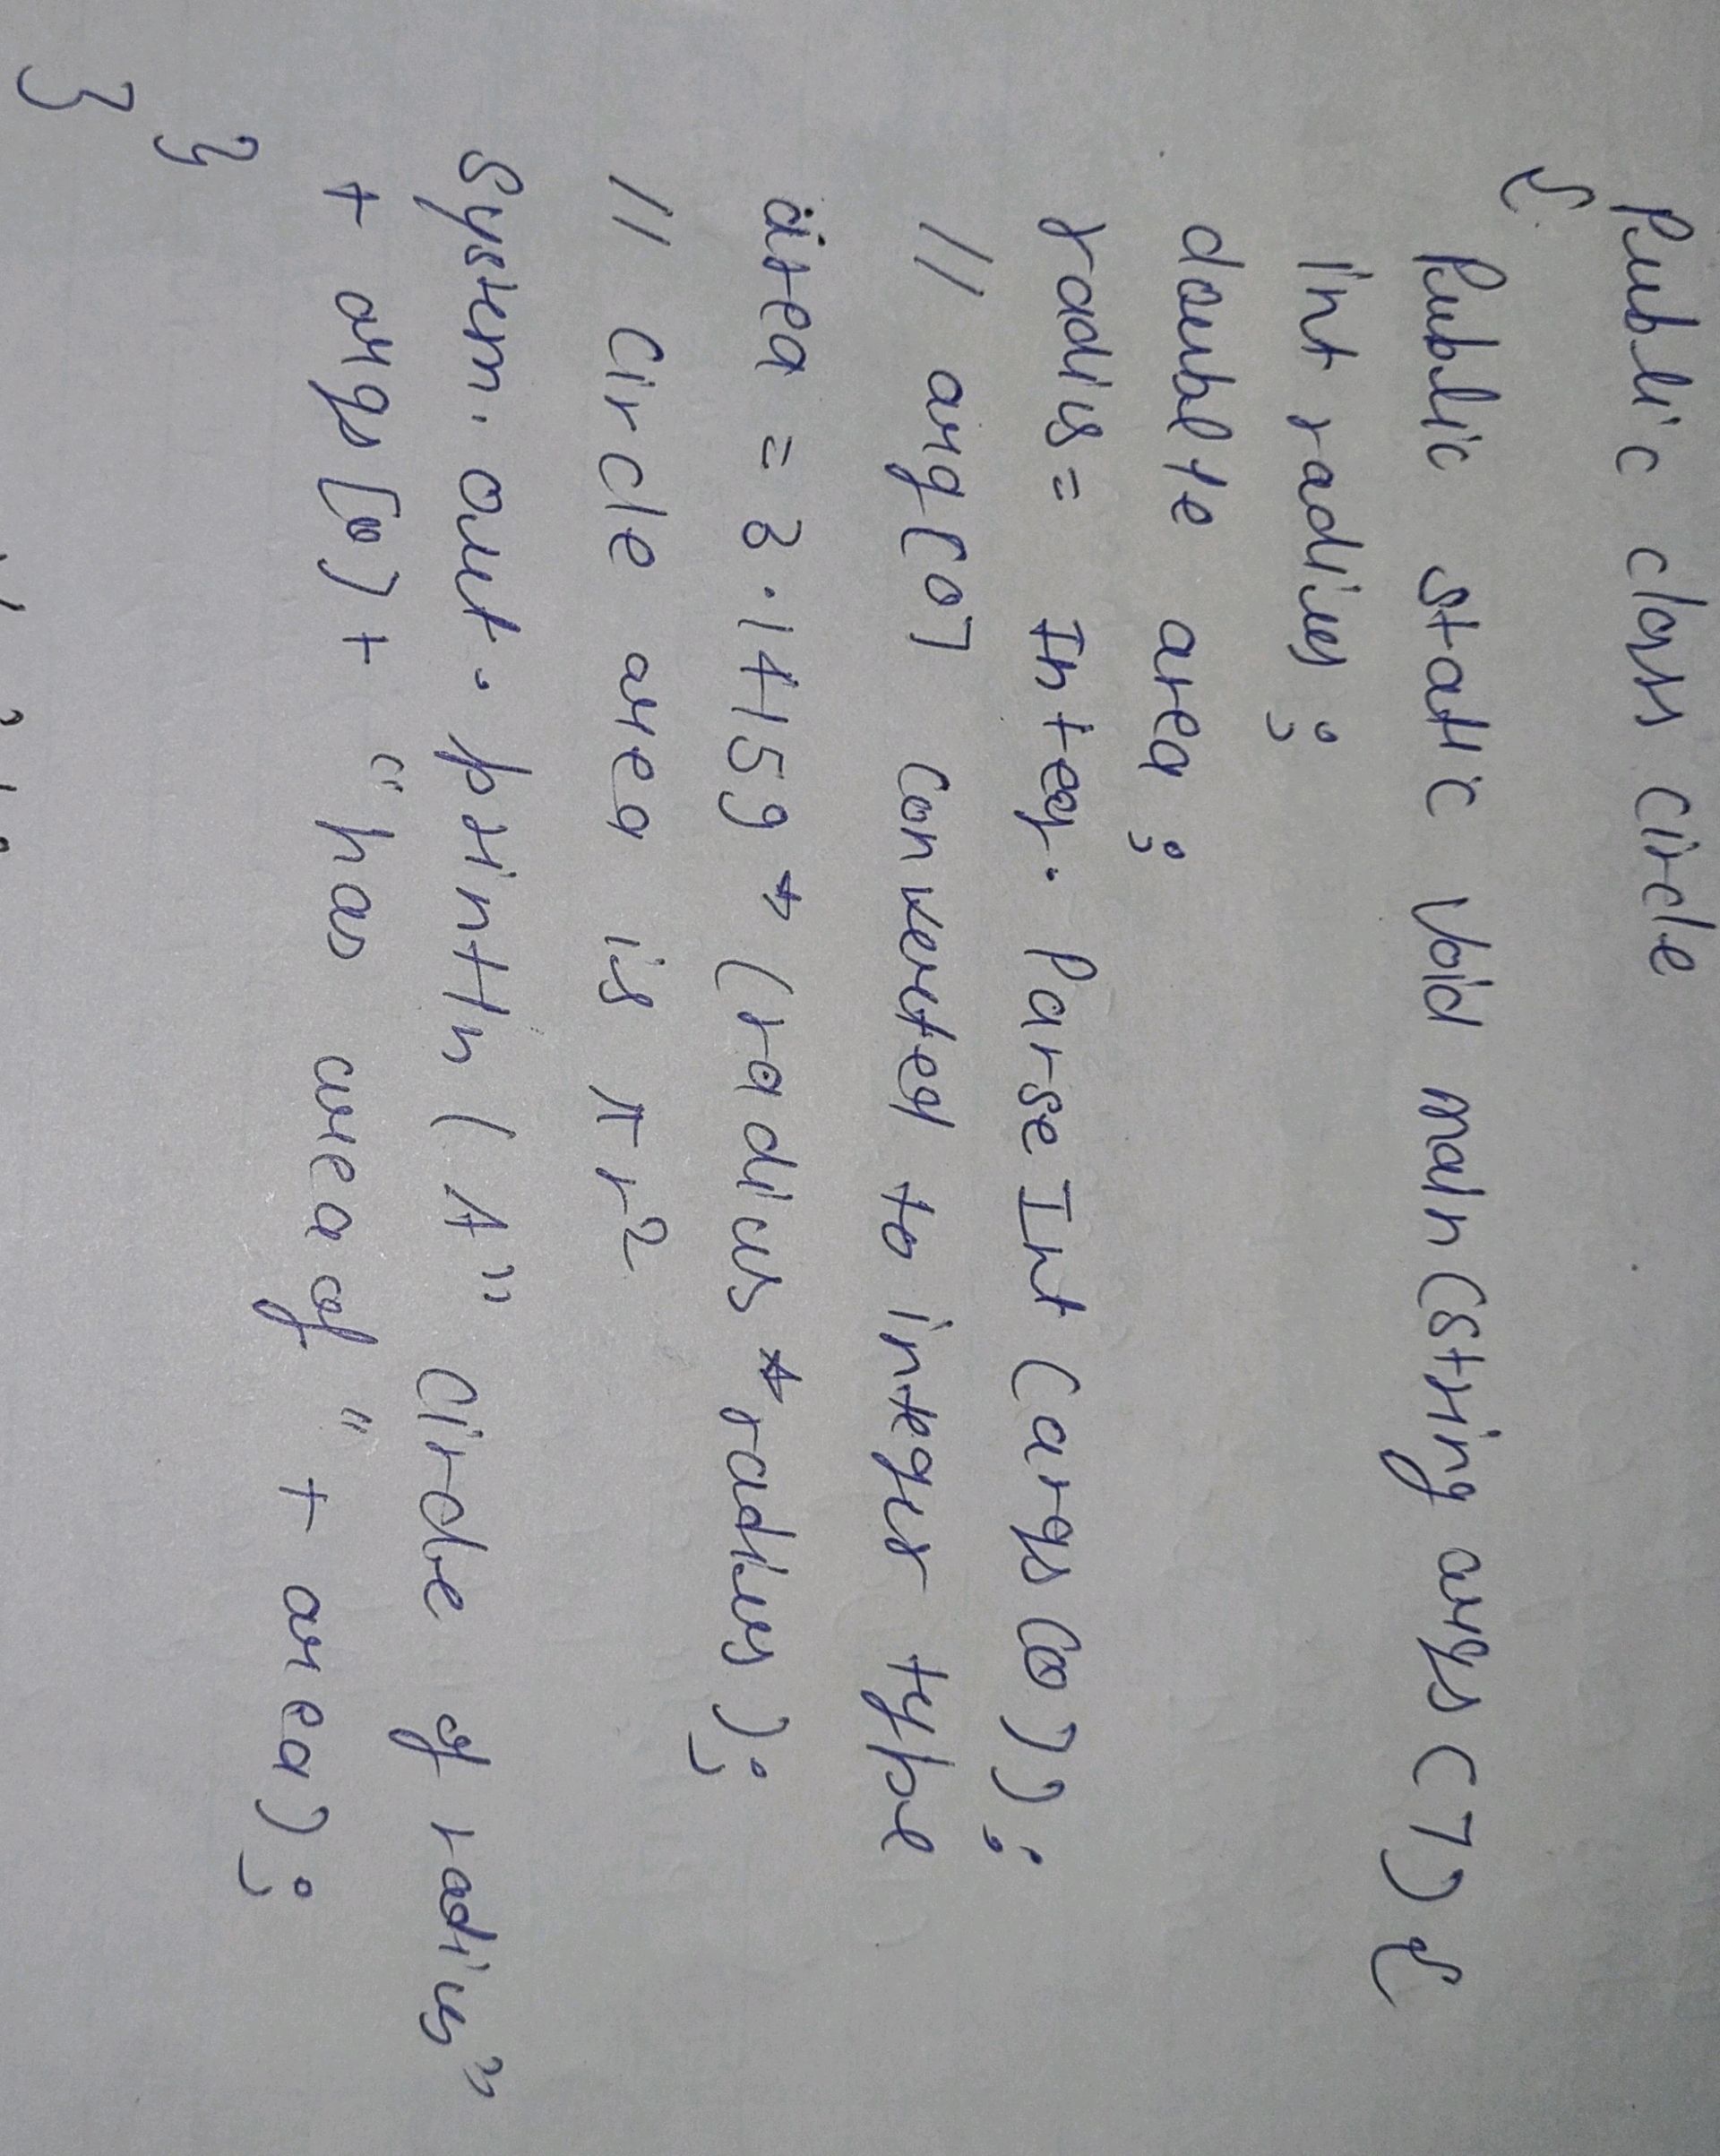 Public class circle
{
Public static void main (string args [ ]) {
int radius ;
double area ;
radius = Integ. Parse Int (args [0]) ;
// arg [0] converted to integer type
area = 3.14159 * (radius * radius) ;
// Circle area is πr²
System. out. println ( A" Circle of radius"
+ args [0] + " has area of " + area) ;
}
}